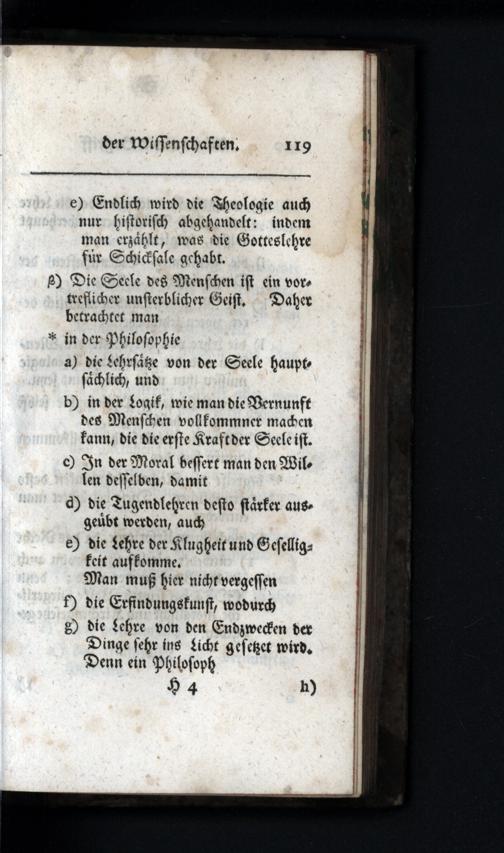 der Wissenschaften. 119
e) Endlich wird die Theologie auch
nur historisch abgehandelt: indem
man erzählt, was die Gotteslehre
für Schicksale gehabt.
β) Die Seele des Menschen ist ein vor-
treflicher unsterblicher Geist. Daher
betrachtet man
* in der Philosophie
a) die Lehrsätze von der Seele haupt-
sächlich, und
b) in der Logik, wie man die Vernunft
des Menschen vollkommner machen
kann, die die erste Kraft der Seele ist.
c) In der Moral bessert man den Wil-
len desselben, damit
d) die Tugendlehren desto stärker aus-
geübt werden, auch
e) die Lehre der Klugheit und Gesellig-
keit aufkomme.
Man muß hier nicht vergessen
f) die Erfindungskunst, wodurch
g) die Lehre von den Endzwecken der
Dinge sehr ins Licht gesetzet wird.
Denn ein Philosoph
H 4 h)